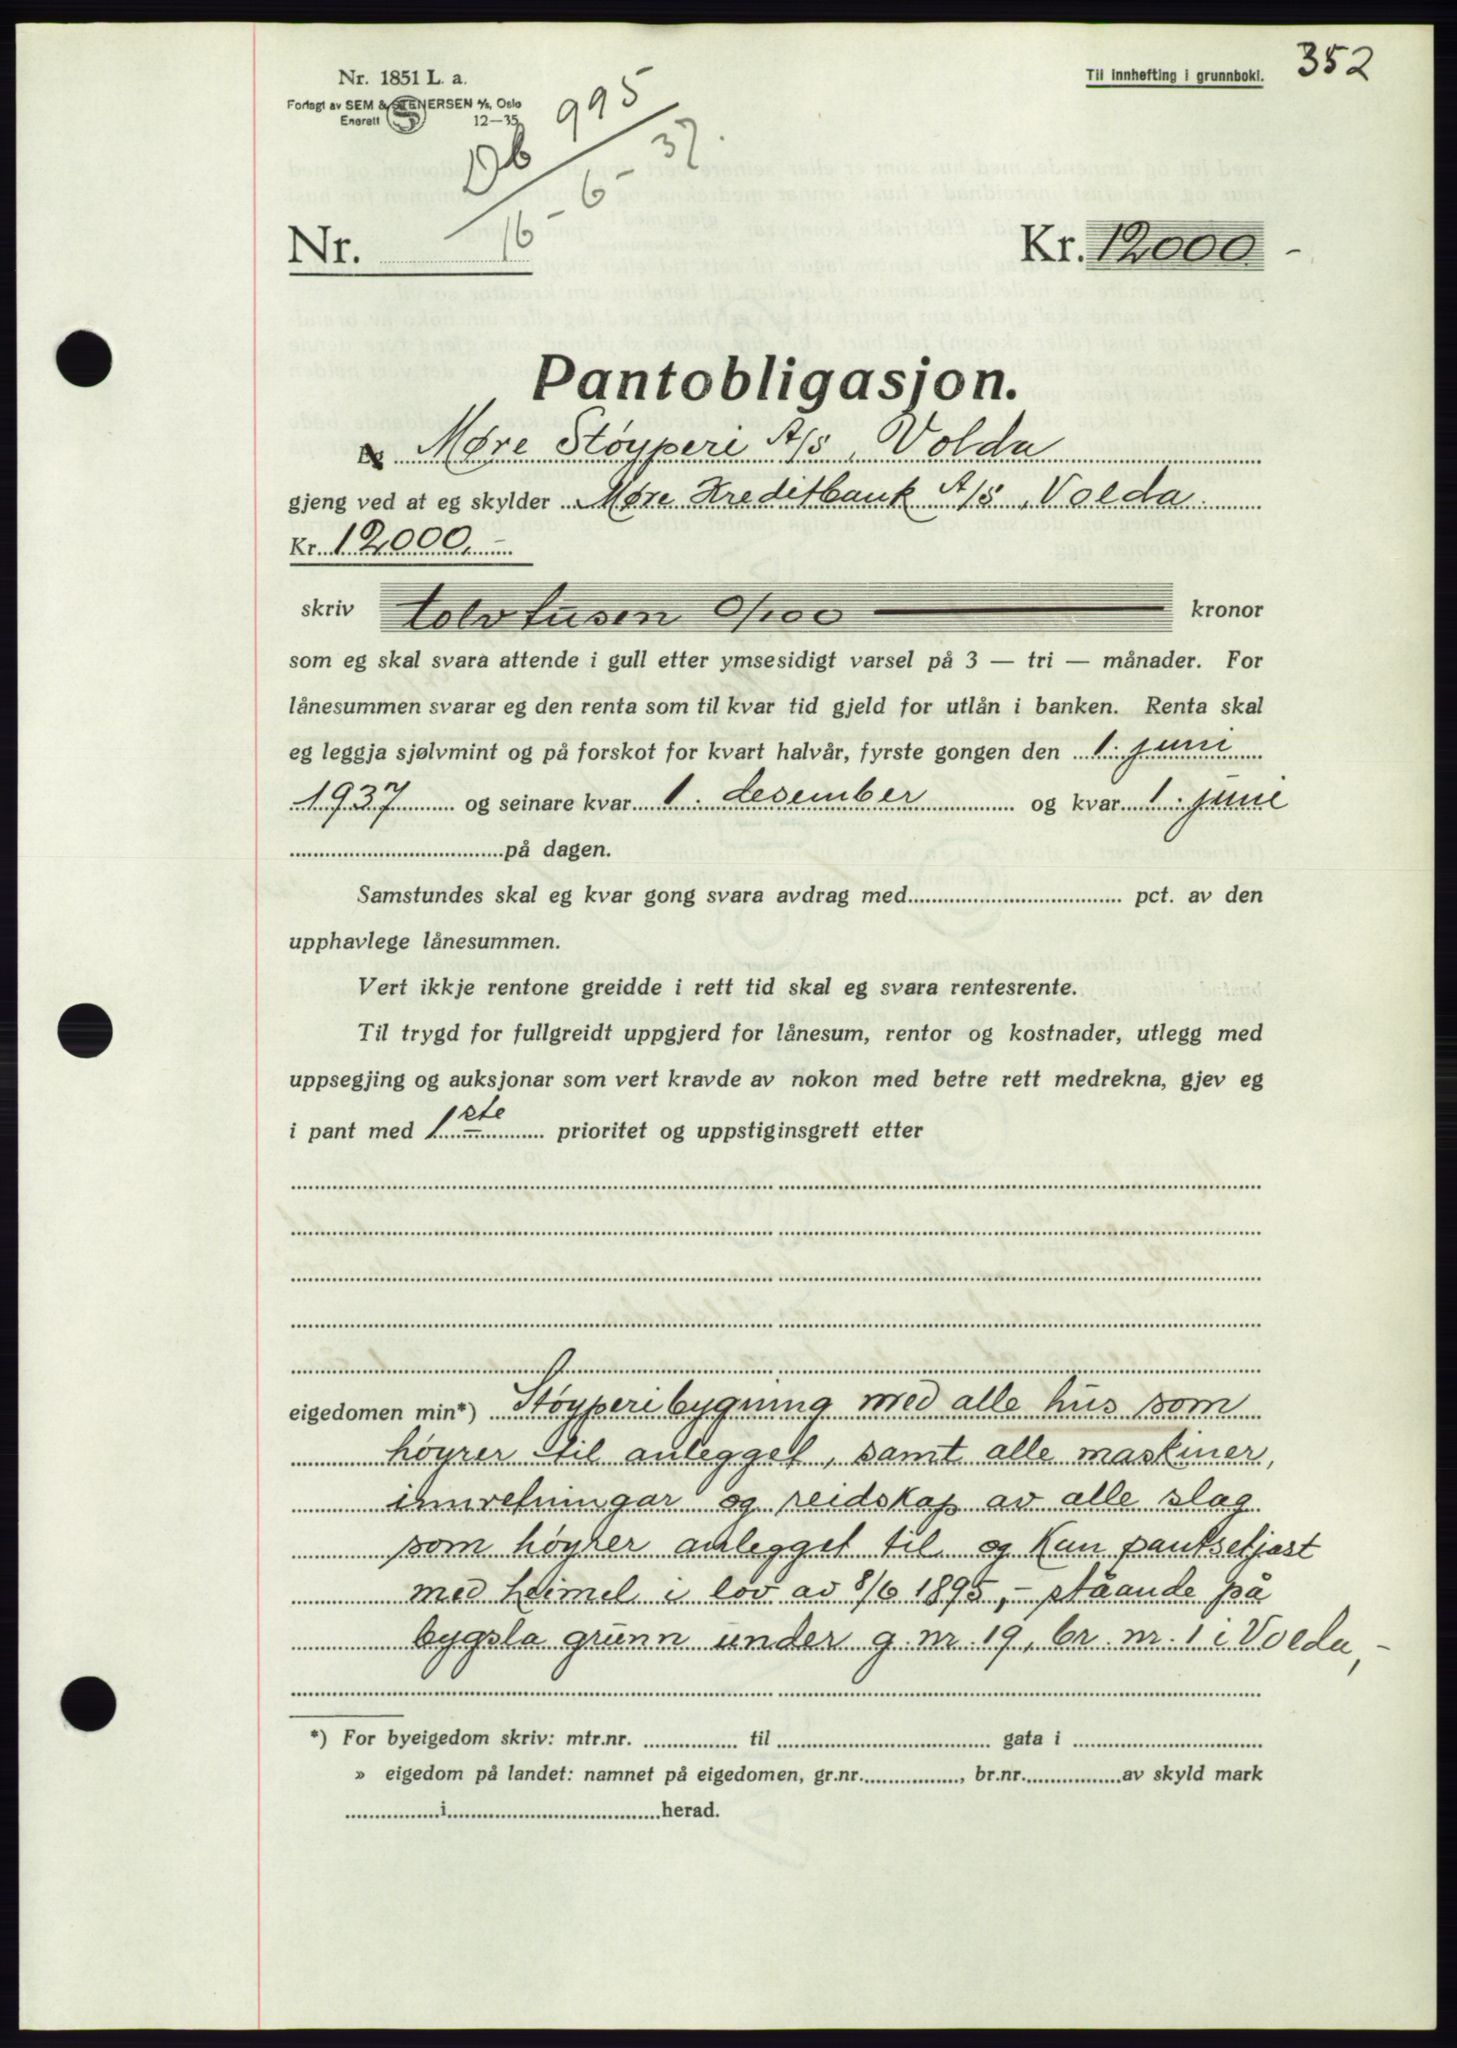 352
Nr. 1851 L. a.
Til innhefting i grunnboki.
Forlagt av SEM & STENERSEN A/S, Oslo
Enerett 12—35
Db 995
16-6-37.
Nr.
Kr. 12000.-
Pantobligasjon.
Eg Møre Støyperi A/S, Volda
gjeng ved at eg skylder Møre Kreditbank A/S, Volda.
Kr. 12000.-
skriv tolvtusen 0/100 kronor
som eg skal svara attende i gull etter ymsesidigt varsel på 3 — tri — månader. For
lånesummen svarar eg den renta som til kvar tid gjeld for utlån i banken. Renta skal
eg leggja sjølvmint og på forskot for kvart halvår, fyrste gongen den 1. juni
1937 og seinare kvar 1. desember og kvar 1. juni
på dagen.
Samstundes skal eg kvar gong svara avdrag med pct. av den
upphavlege lånesummen.
Vert ikkje rentone greidde i rett tid skal eg svara rentesrente.
Til trygd for fullgreidt uppgjerd for lånesum, rentor og kostnader, utlegg med
uppsegjing og auksjonar som vert kravde av nokon med betre rett medrekna, gjev eg
i pant med 1ste prioritet og uppstiginsgrett etter
eigedomen min*) Støyperibygning med alle hus som
høyrer til anlegget, samt alle maskiner,
innretningar og reidskap av alle slag
som høyrer anlegget til og kan pantsetjast
med heimel i lov av 8/6 1895,- ståande på
bygsla grunn under g. nr. 19, br. nr. 1 i Volda,-
*) For byeigedom skriv: mtr.nr. til gata i
» eigedom på landet: namnet på eigedomen, gr.nr. , br.nr. av skyld mark
i herad.